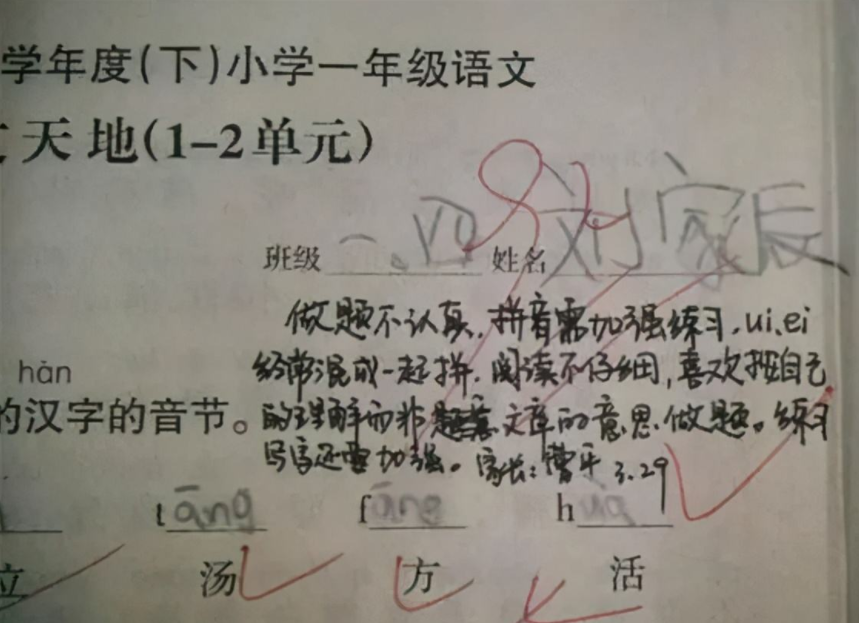 学年度(下)小学一年级语文
天地(1-2单元)
班级 一、四 姓名 刘家辰
做题不认真,拼音需加强练习,ui、ei
hàn
经常混成一起拼,阅读不仔细,喜欢按自己
的汉字的音节。
的理解而非 文章的意思做题。练习
写字还需加强。家长:曹平 3.29
tāng fāng h
立 汤 方 活